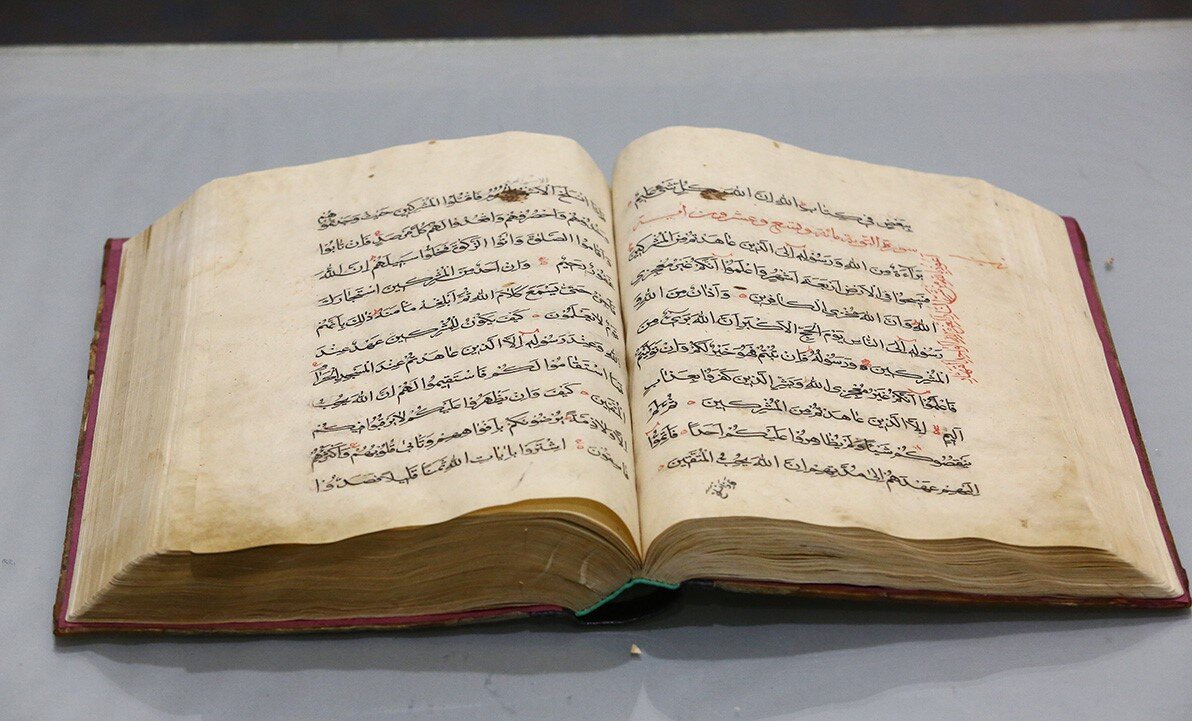 ببعض في كتاب الله ان الله بكل شي عليم
سورة التوبة مائة وتسع وعشرون اية
براءة من الله ورسوله الى الذين عاهدتم من المشركين
فسيحوا في الارض اربعة اشهر واعلموا انكم غير معجزي
الله وان الله مخزي الكافرين واذان من الله و
رسوله الى الناس يوم الحج الاكبر ان الله بريء من
المشركين ورسوله فان تبتم فهو خير لكم وان توليتم
فاعلموا انكم غير معجزي الله وبشر الذين كفروا بعذاب
اليم الا الذين عاهدتم من المشركين ثم لم
ينقصوكم شيئا ولم يظاهروا عليكم احدا فاتموا
اليهم عهدهم الى مدتهم ان الله يحب المتقين
انسلخ الاشهر فاقتلوا المشركين حيث وجدتموهم
واحصروهم واقعدوا لهم كل مرصد فان تابوا
واقاموا الصلوة واتوا الزكوة فخلوا سبيلهم ان الله
رحيم وان احد من المشركين استجارك
حتى يسمع كلام الله ثم ابلغه مامنه ذلك بانهم
قوم لا يعلمون كيف يكون للمشركين عهد عند
الله وعند رسوله الا الذين عاهدتم عند المسجد الحرام
فما استقاموا لكم فاستقيموا لهم ان الله يحب
المتقين كيف وان يظهروا عليكم لا يرقبوا فيكم
الا ولا ذمة يرضونكم بافواههم وتابى قلوبهم واكثرهم
فاسقون اشتروا بايات الله ثمنا قليلا فصدوا